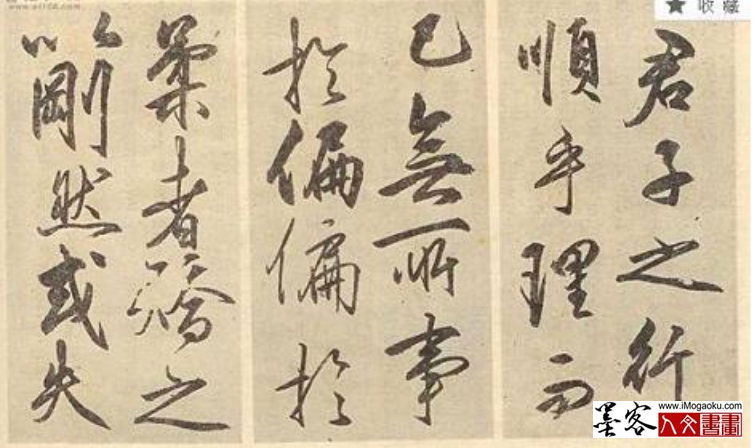 ★ 收藏
君子之行
順乎理而
已無所事
於偏偏於
柔者矯之
以剛然或失
www.iMogaoku.com
墨客
人文書畫